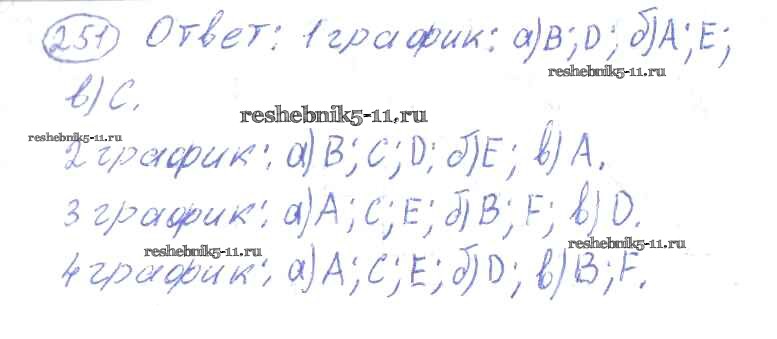 251 Ответ: 1 график: а) B; D; б) A; E;
reshebnik5-11.ru
в) C.
reshebnik5-11.ru
reshebnik5-11.ru
2 график: а) B; C; D; б) E; в) A.
3 график: а) A; C; E; б) B; F; в) D.
reshebnik5-11.ru
reshebnik5-11.ru
4 график: а) A; C; E; б) D; в) B; F.